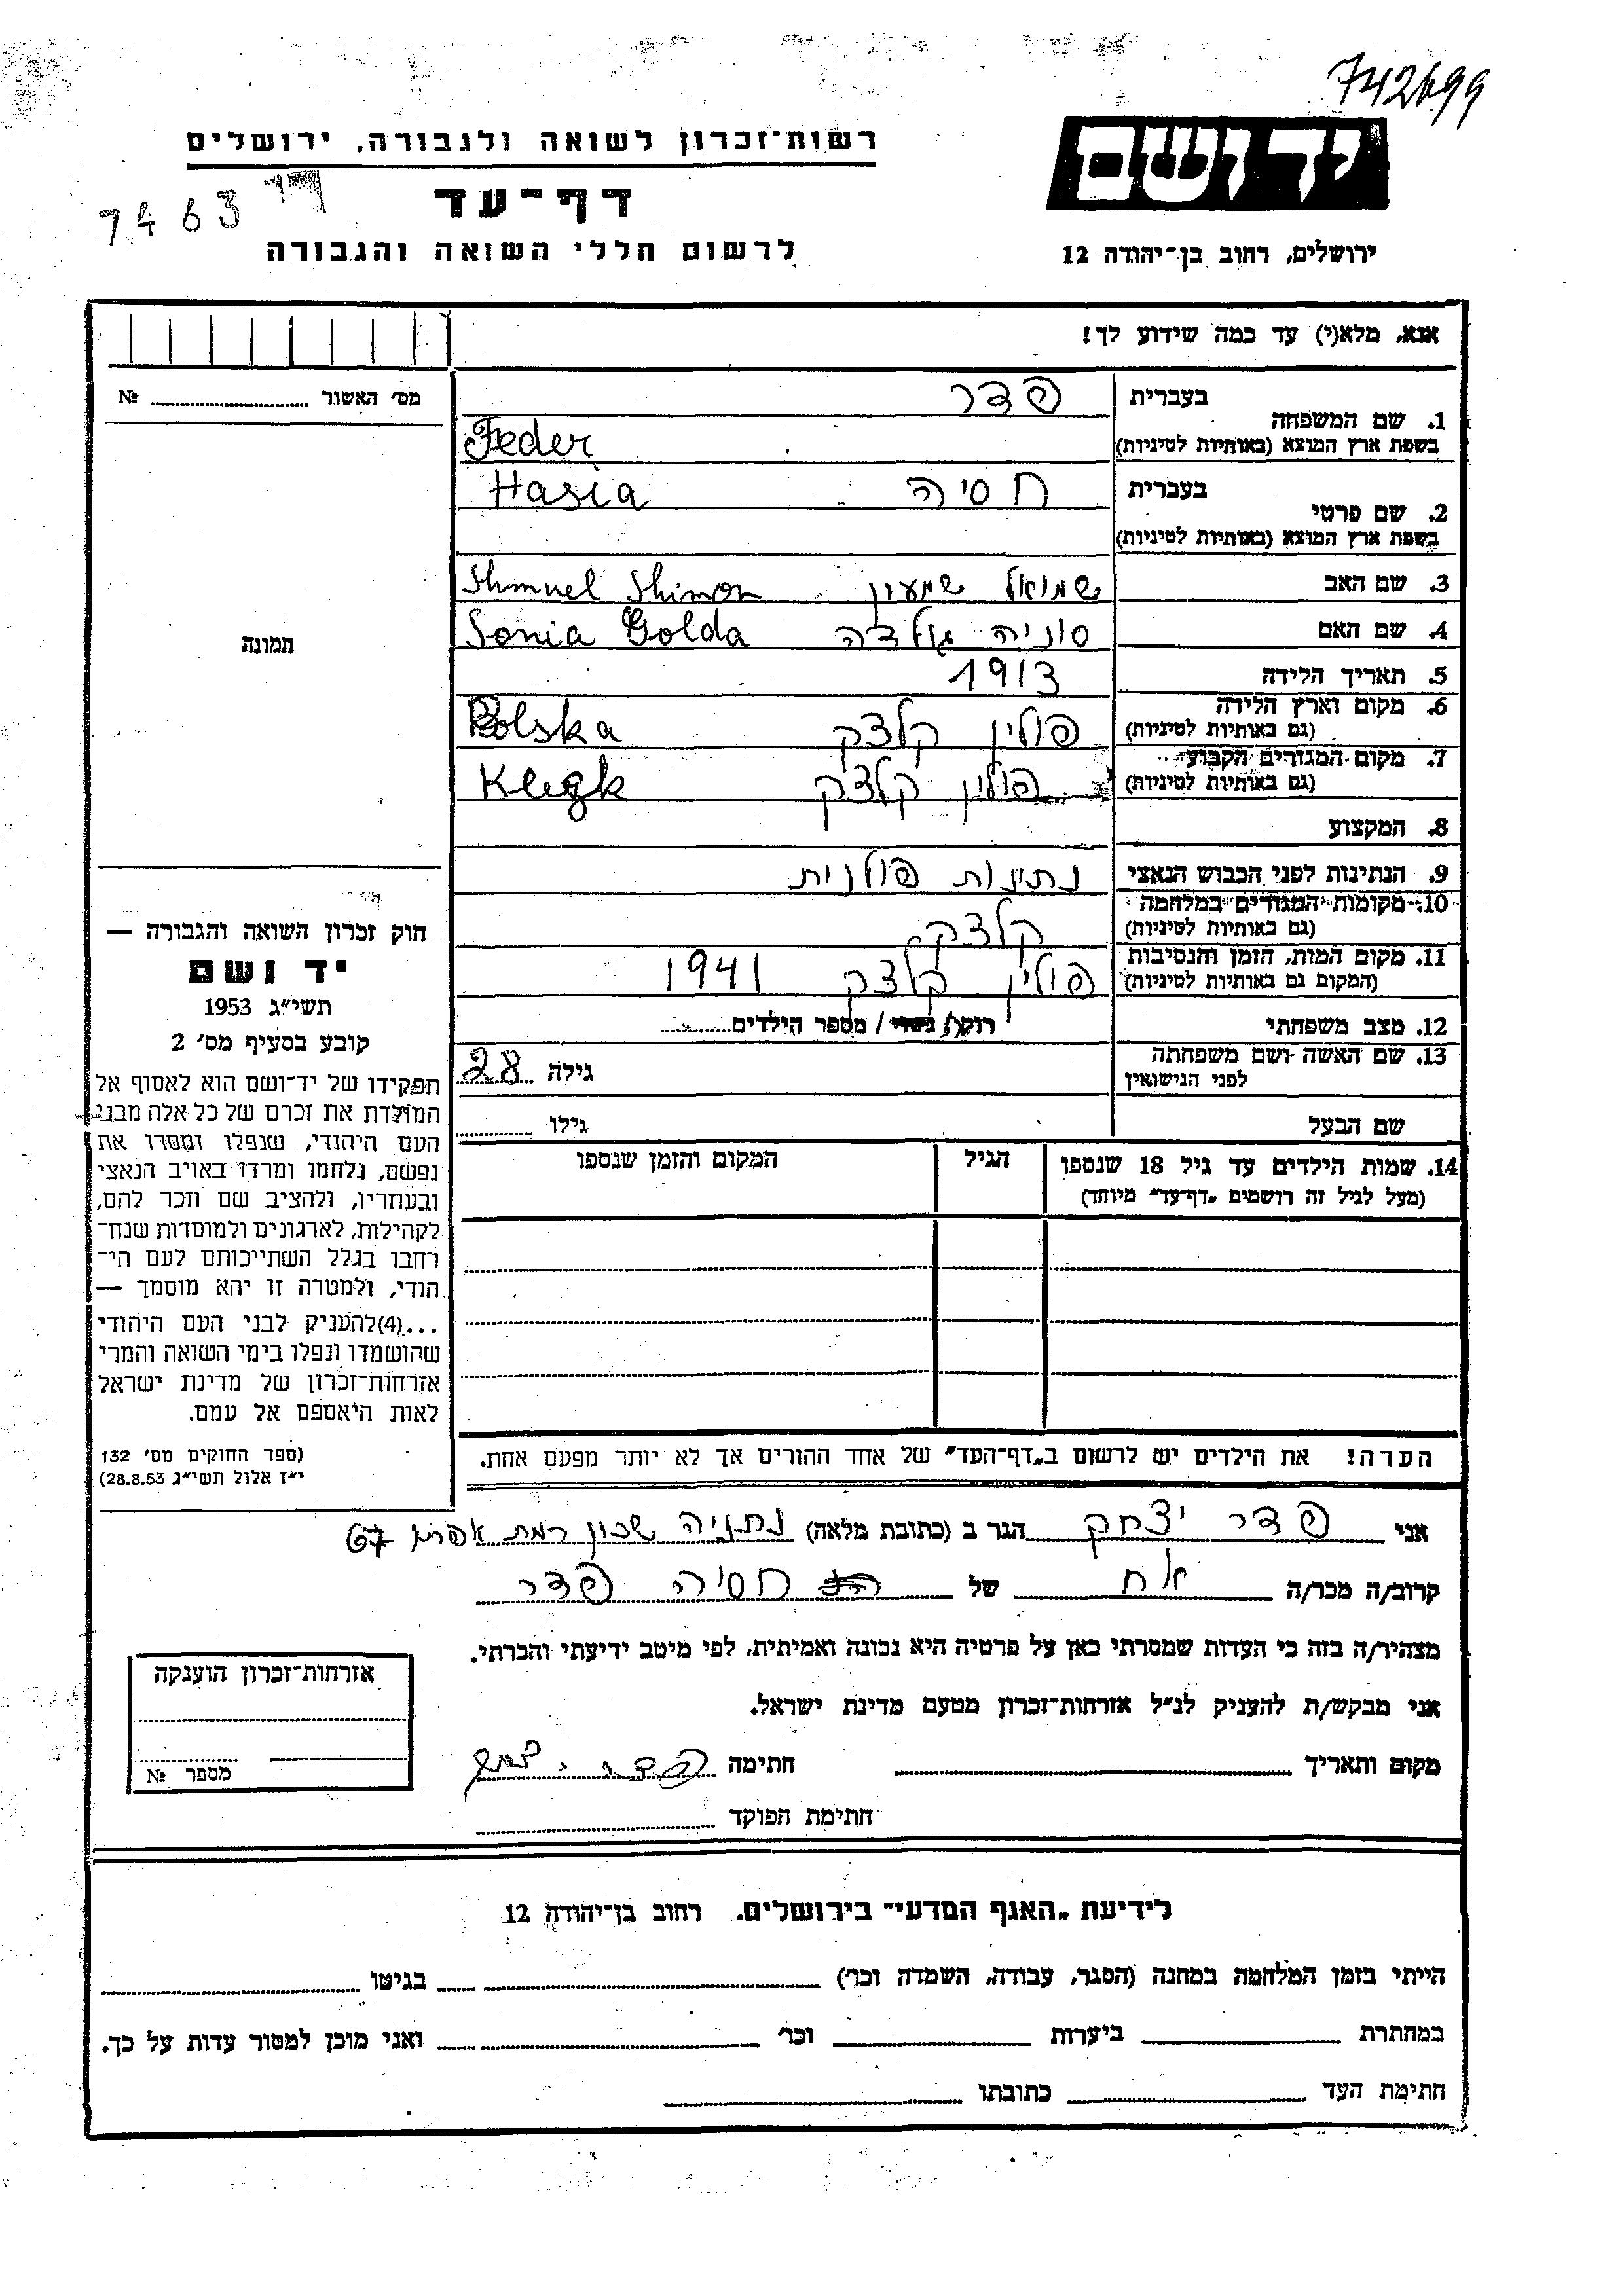 742699
רשות־זכרון לשואה ולגבורה, ירושלים
יד ושם
דף־עד
7463
לרשום חללי השואה והגבורה
ירושלים, רחוב בן־יהודה 12
אנא, מלא(י) עד כמה שידוע לך!
מס׳ האשור № ........
1. שם המשפחה
בעברית פדר
בשפת ארץ המוצא (באותיות לטיניות) Feder
2. שם פרטי
בעברית חסיה Hasia
בשפת ארץ המוצא (באותיות לטיניות)
3. שם האב שמואל שמעון Shmuel Shimon
4. שם האם סוניה גולדה Sonia Golda
5. תאריך הלידה 1913
6. מקום וארץ הלידה
(גם באותיות לטיניות) פולין קלצק Polska
7. מקום המגורים הקבוע
(גם באותיות לטיניות) פולין קלצק Klezk
8. המקצוע
9. הנתינות לפני הכבוש הנאצי נתינות פולנית
10. מקומות המגורים במלחמה
(גם באותיות לטיניות) קלצק
11. מקום המות, הזמן והנסיבות
(המקום גם באותיות לטיניות) פולין קלצק 1941
12. מצב משפחתי רוק/ נשוי / מספר הילדים........
13. שם האשה ושם משפחתה
לפני הנישואין גילה 28
שם הבעל גילו ........
14. שמות הילדים עד גיל 18 שנספו הגיל המקום והזמן שנספו
(מעל לגיל זה רושמים „דף־עד״ מיוחד)
תמונה
חוק זכרון השואה והגבורה —
יד ושם
תשי״ג 1953
קובע בסעיף מס׳ 2
תפקידו של יד־ושם הוא לאסוף אל
המולדת את זכרם של כל אלה מבני
העם היהודי, שנפלו ומסרו את
נפשם, נלחמו ומרדו באויב הנאצי
ובעוזריו, ולהציב שם וזכר להם,
לקהילות, לארגונים ולמוסדות שנח־
רבו בגלל השתייכותם לעם הי־
הודי, ולמטרה זו יהא מוסמך —
...(4)להעניק לבני העם היהודי
שהושמדו ונפלו בימי השואה והמרי
אזרחות־זכרון של מדינת ישראל
לאות היאספם אל עמם.
(ספר החוקים מס׳ 132
י״ז אלול תשי״ג 28.8.53)
הערה! את הילדים יש לרשום ב„דף־העד״ של אחד ההורים אך לא יותר מפעם אחת.
אני פדר יצחק הגר ב (כתובת מלאה) נתניה שכון רמת אפרים 67
קרוב/ה מכר/ה אח של חסיה פדר
מצהיר/ה בזה כי העדות שמסרתי כאן על פרטיה היא נכונה ואמיתית, לפי מיטב ידיעתי והכרתי.
אני מבקש/ת להעניק לנ״ל אזרחות־זכרון מטעם מדינת ישראל.
מקום ותאריך ........ חתימה פדר יצחק
חתימת הפוקד ........
אזרחות־זכרון הוענקה
מספר №
לידיעת „האגף המדעי״ בירושלים. רחוב בן־יהודה 12
הייתי בזמן המלחמה במחנה (הסגר, עבודה, השמדה וכו׳) ........ בגיטו ........
במחתרת ........ ביערות ........ וכו׳ ........ ואני מוכן למסור עדות על כך.
חתימת העד ........ כתובתו ........